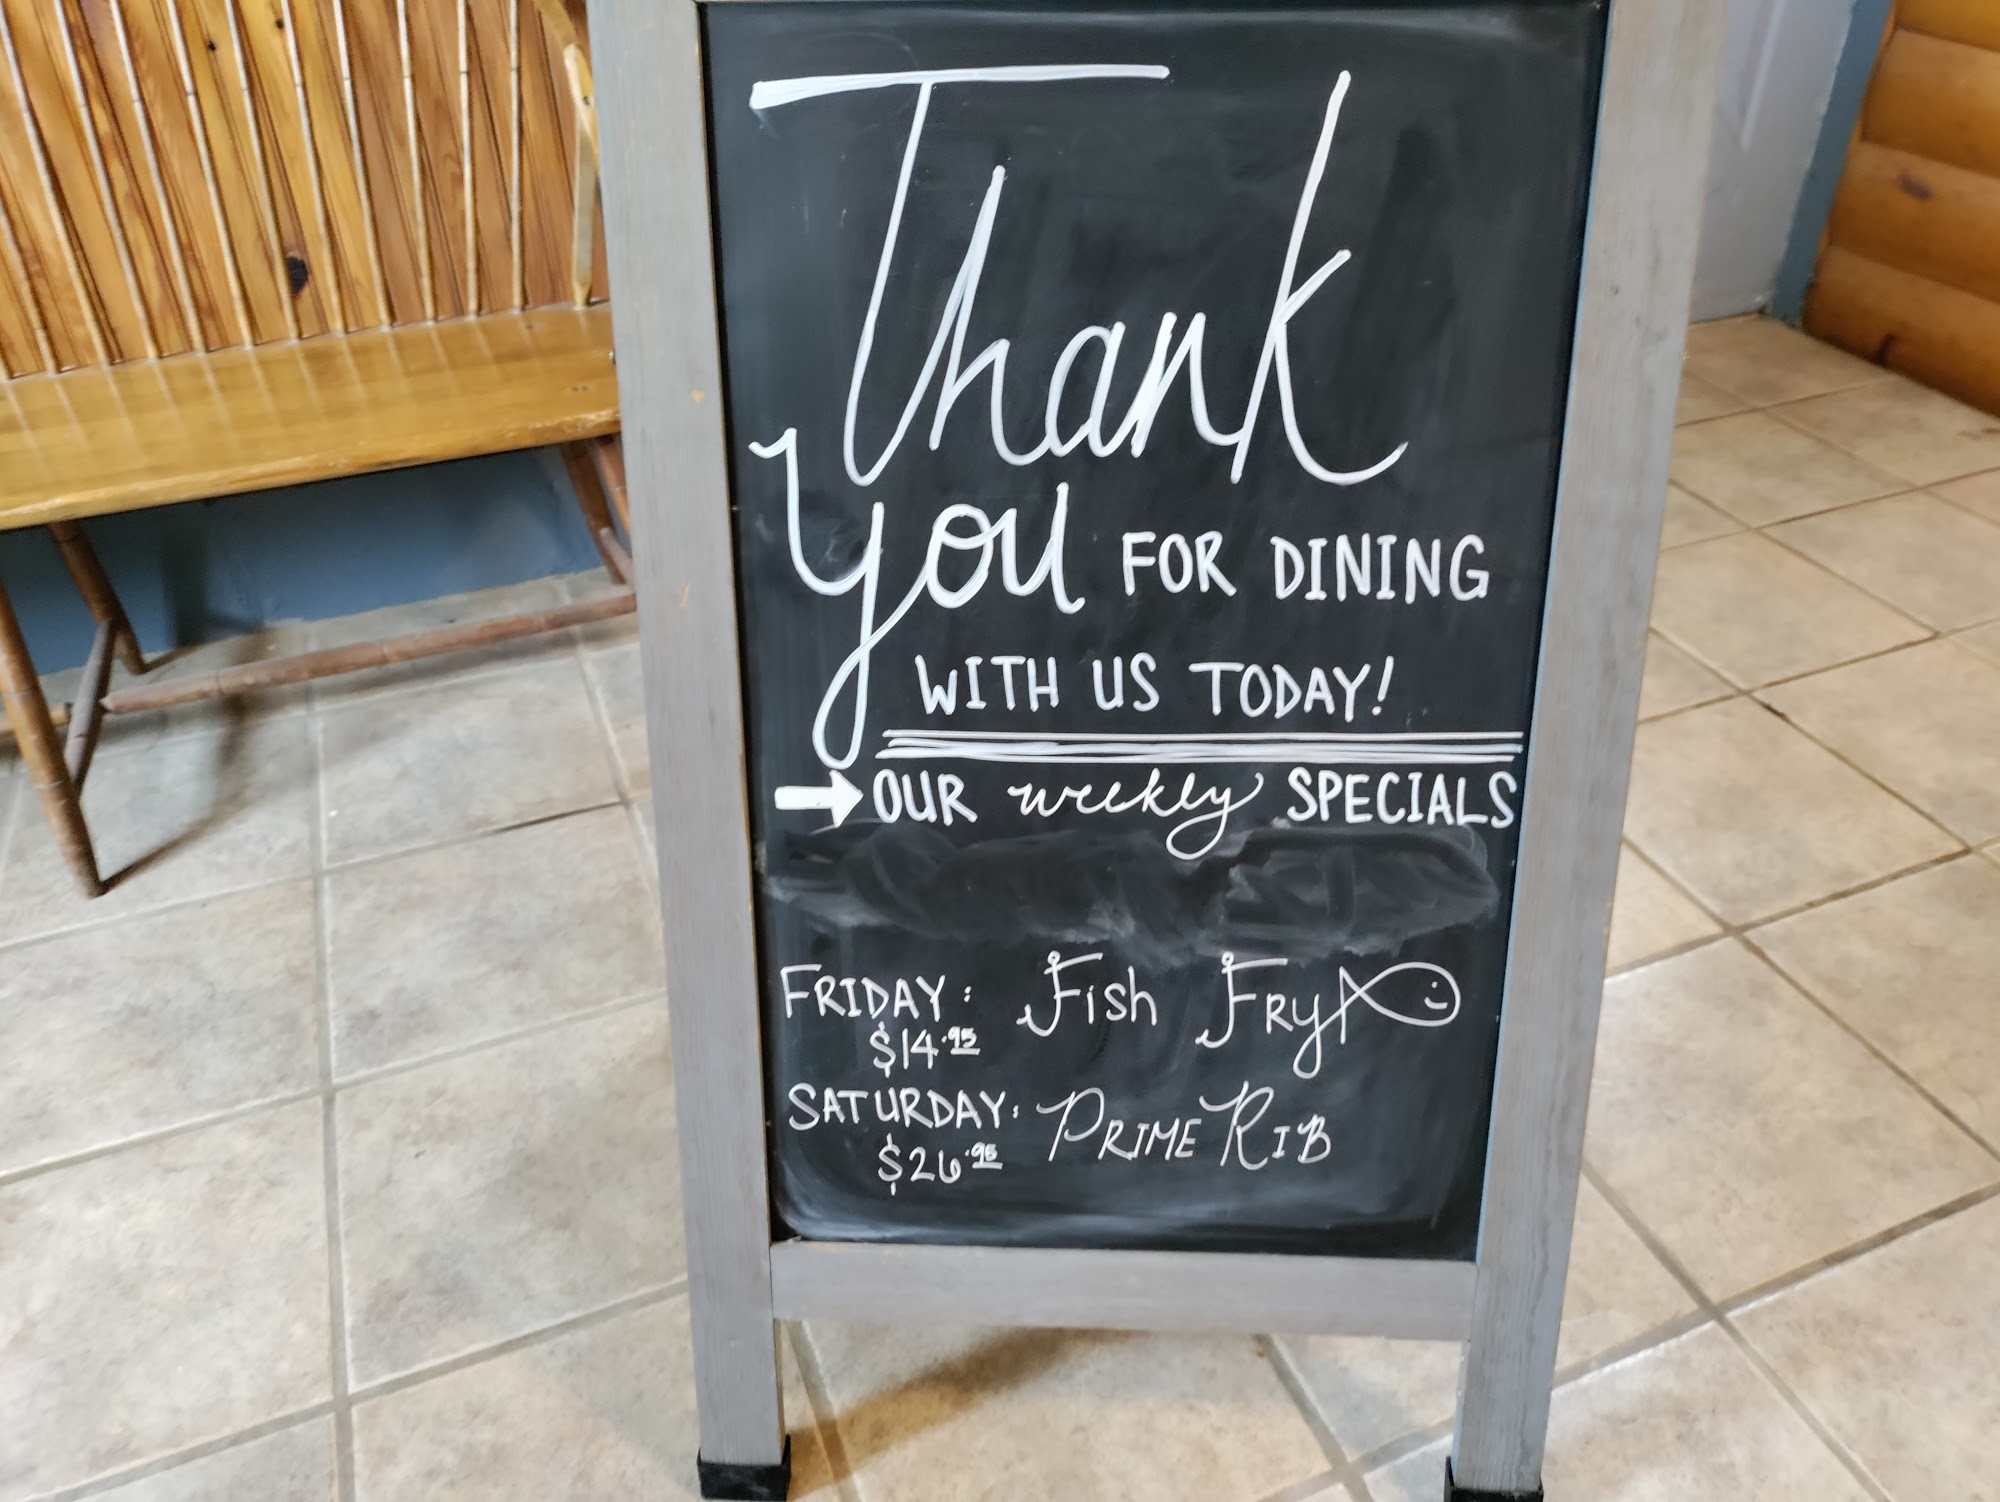 Thank
you FOR DINING
WITH US TODAY!
OUR weekly SPECIALS
FRIDAY: Fish FRY
$14.95
SATURDAY: PRIME RIB
$26.95